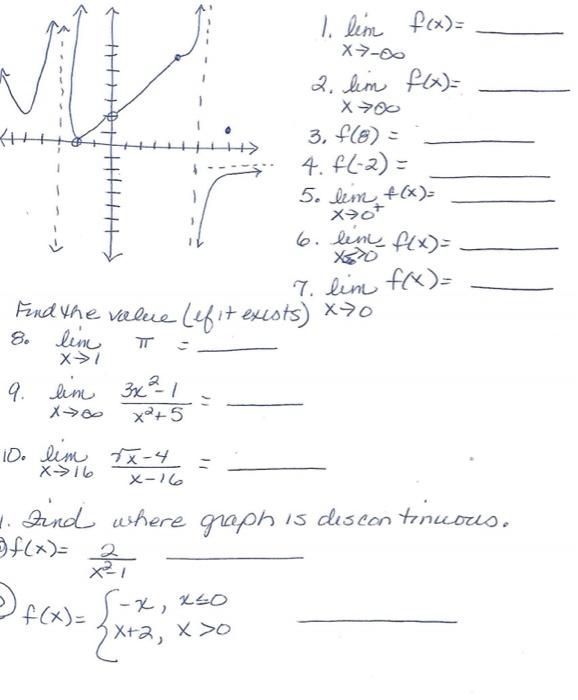 1. lim f(x)= ____
x→-∞
2. lim f(x)= ____
x→∞
3. f(8) = ____
4. f(-2) = ____
5. lim f(x)= ____
x→0⁺
6. lim f(x)= ____
x→0⁻
7. lim f(x)= ____
x→0
Find the value (if it exists)
8. lim π = ____
x→1
9. lim (3x²-1)/(x²+5) = ____
x→∞
10. lim (√x-4)/(x-16) = ____
x→16
1. Find where graph is discontinuous.
f(x)= 2/(x²-1) ____
f(x)= { -x, x≤0
x+2, x>0 ____